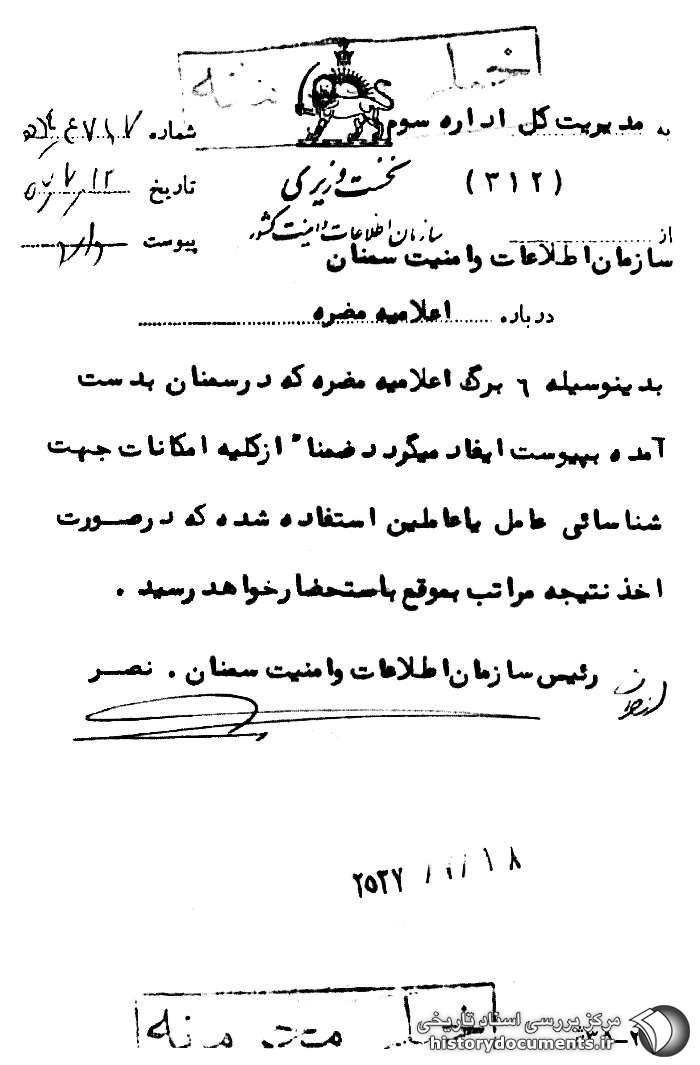 به مدیریت کل اداره سوم
(۳۱۲)
نخست وزیری
سازمان اطلاعات و امنیت کشور
شماره
تاریخ
پیوست دارد
از
سازمان اطلاعات وامنیت سمنان
درباره اعلامیه مضره
بدینوسیله ٦ برگ اعلامیه مضره که درسمنان بدست
آمده بپیوست ایفاد میگردد ضمنا" ازکلیه امکانات جهت
شناسائی عامل یاعاملین استفاده شده که درصورت
اخذ نتیجه مراتب بموقع باستحضارخواهد رسید .
رئیس سازمان اطلاعات وامنیت سمنان . نصر
۲۵۳۷ / / / ۱۸
خیلی محرمانه
مرکز بررسی اسناد تاریخی
historydocuments.ir